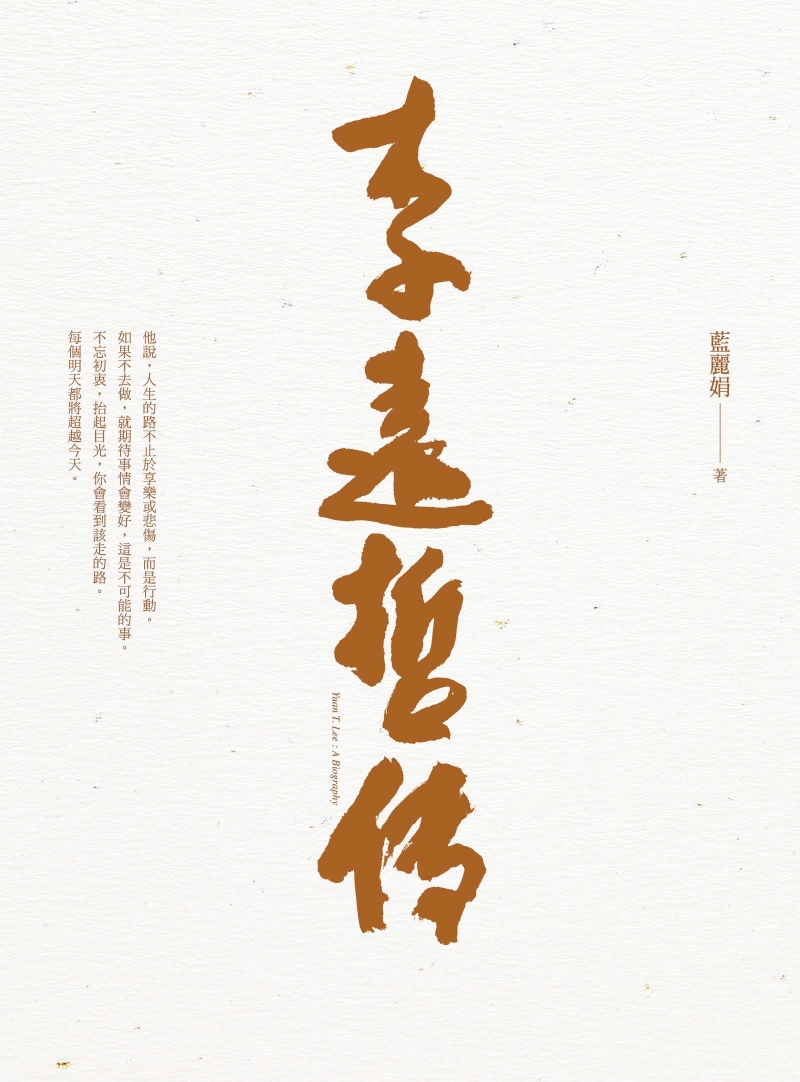 藍麗娟——著
李遠哲傳
Yuan T. Lee : A Biography
他說，人生的路不止於享樂或悲傷，而是行動。
如果不去做，就期待事情會變好，這是不可能的事。
不忘初衷，抬起目光，你會看到該走的路。
每個明天都將超越今天。